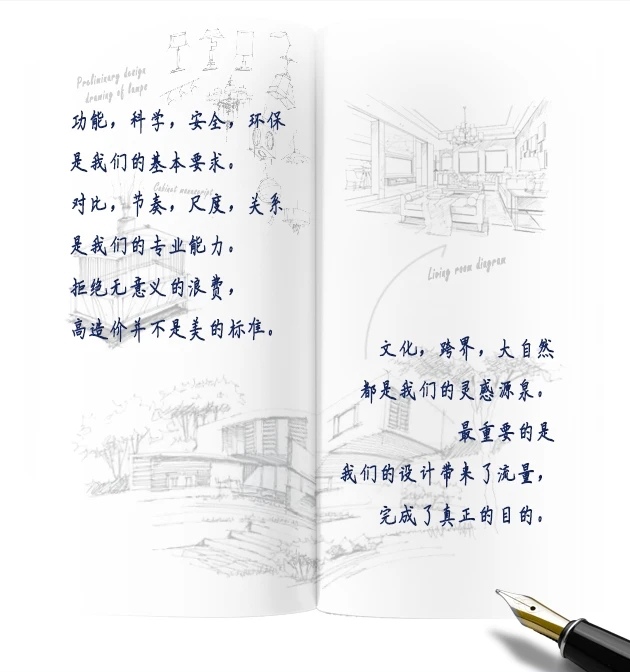 Preliminary design
drawing of lamps
功能，科学，安全，环保
是我们的基本要求。
Cabinet manuscript
对比，节奏，尺度，关系
是我们的专业能力。
拒绝无意义的浪费，
高造价并不是美的标准。
Living room diagram
文化，跨界，大自然
都是我们的灵感源泉。
最重要的是
我们的设计带来了流量，
完成了真正的目的。